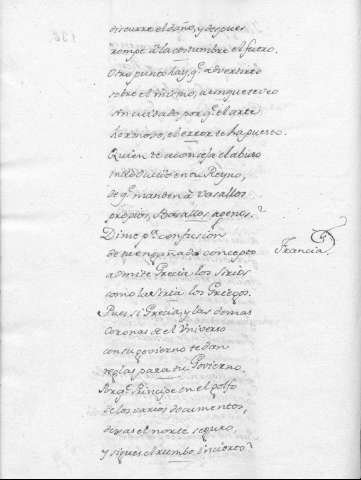 discurre el daño, y despues
rompe de la costumbre el fuero.
Otro punto hay q.e advertiros
sobre el mismo, aunque
sin cuidado, porq.e el arte
hermoso, el error te ha puesto.
Quien te aconseja el abuso
introducido en tu Reyno,
de q.e manden à vasallos
propios, Vasallos agenos?
Dime p.r confusion
de tu engañado concepto
Francia.
admite Grecia los Sirios
como la Siria los Griegos.
Pues si Grecia, y las demas
Coronas de el Universo
con su govierno te dan
reglas para tu Govierno.
Porq.e Principe en el golfo
de los varios documentos,
dexas el norte seguro,
y sigues el rumbo incierto?